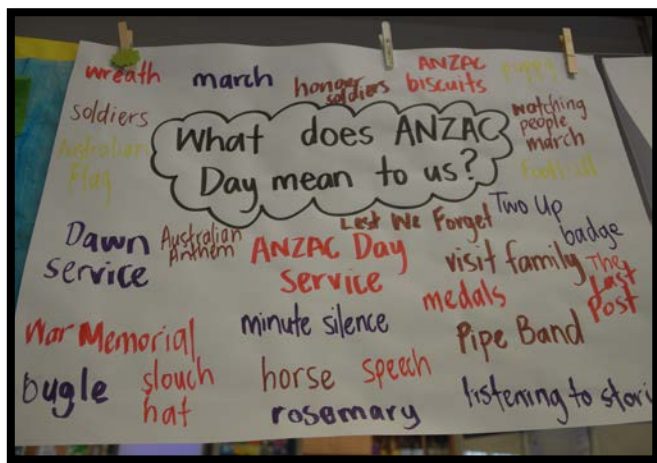 wreath march honour soldiers ANZAC biscuits poppy
soldiers
Australian Flag
What does ANZAC
Day mean to us?
watching people march
Football
Dawn service
Australian Anthem
Lest We Forget
ANZAC Day service
Two Up
badge
visit family
The Last Post
medals
War Memorial
minute silence
Pipe Band
bugle
slouch hat
horse
speech
rosemary
listening to stori